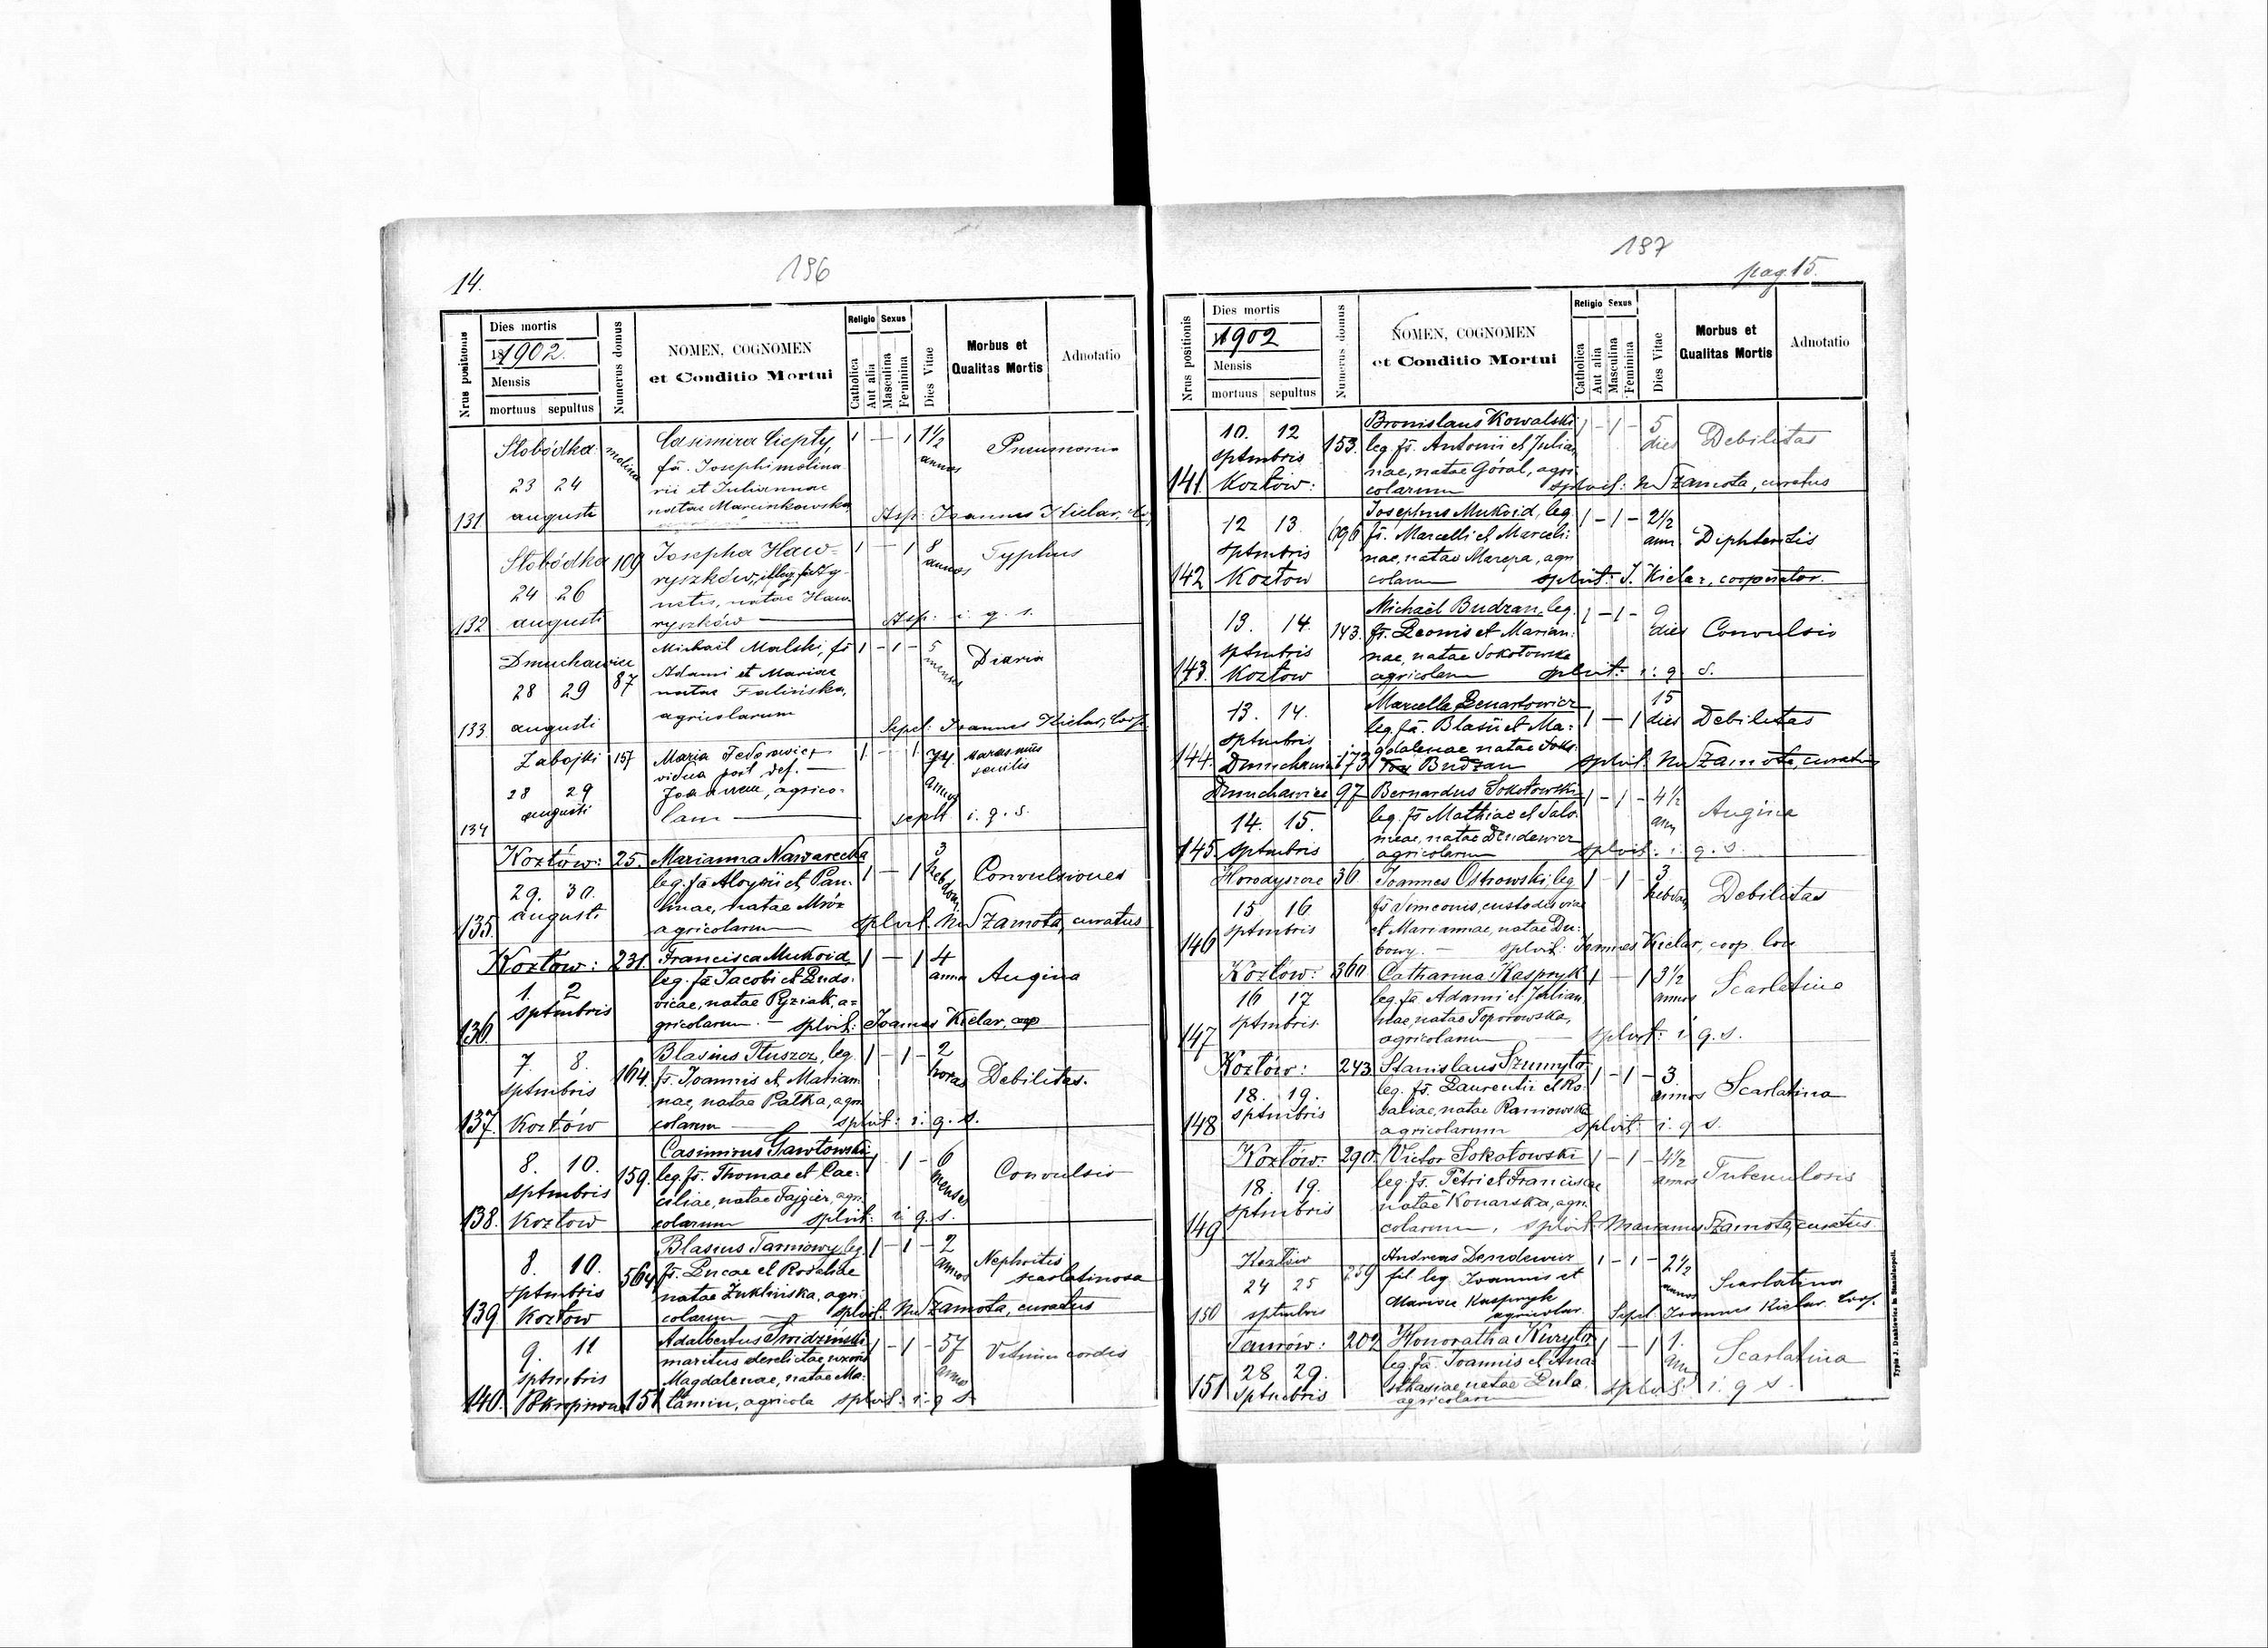 14.
196
Nrus positionis
Dies mortis
181902.
Mensis
mortuus sepultus
Numerus domus
NOMEN, COGNOMEN
et Conditio Mortui
Religio Sexus
Catholica
Aut alia
Masculina
Feminina
Dies Vitae
Morbus et
Qualitas Mortis
Adnotatio
131
Słobódka
23 24
augusti
Casimira Ciepły,
fa. Josephi molina
rii et Juliannae
natae Marcinkowska
1 — 1 1½
annos
Pneumonia
Joannes Kielar
132
Słobódka 109
24 26
augusti
Josepha Haw=
ryszków, illeg. fa Ag-
netis, natae Haw-
ryszków —
1 — 1 8
annos
Typhus
i. q. s.
133
Dmuchawice
87
28 29
augusti
Michaël Malski, fs
Adami et Mariae
natae Falińska,
agricolarum
1 — 1 — 5
menses
Diaria
Sepel: Joannes Kielar, Coop.
134
Zabojki 157
28 29
augusti
Maria Fedorowicz
vidua post def. —
Joanne, agrico-
lam —
1 — 1 74
annos
Marasmus
senilis
seplt i. q. s.
135.
Kozłów: 25.
29. 30.
augusti
Marianna Nawarecka
leg. fa Aloysii et Pau-
linae, natae Mróz
agricolarum —
1 — 1 3
hebdom.
Convulsiones
splvit. Szamota, curatus
136.
Kozłów: 231.
1. 2
sptmbris
Francisca Mukoid,
leg. fa Jacobi et Ludo-
vicae, natae Pyziak, a=
gricolarum. — splvit: Joannes Kielar, coop
1 — 1 4
annos
Angina
137.
7. 8.
sptmbris
Kozłów
164.
Blasius Tłuszcz, leg.
fs. Joannis et Marian
nae, natae Pałka, agri
colarum — splvit: i. q. s.
1 — 1 — 2
horas
Debilitas.
138.
8. 10.
sptmbris
Kozłów
159.
Casimirus Gawłowski
leg. fs. Thomae et Cae-
ciliae, natae Fajgier, agri
colarum splvit: i. q. s.
1 — 1 — 6
menses
Convulsio
139
8. 10.
sptmbris
Kozłów
564
Blasius Tarnowy, leg
fs. Lucae et Rosaliae
natae Żuklińska, agri-
colarum — splvit. Szamota, curatus
1 — 1 — 2
annos
Nephritis
scarlatinosa
140.
9. 11
sptmbris
151
Adalbertus Śmidziński
maritus derelictae uxoris
Magdalenae, natae Ma-
łamin, agricola splvit: i. q. s.
1 — 1 — 57
annos
Vitium cordis
187
pag. 15.
Nrus positionis
Dies mortis
1902
Mensis
mortuus sepultus
Numerus domus
NOMEN, COGNOMEN
et Conditio Mortui
Religio Sexus
Catholica
Aut alia
Masculina
Feminina
Dies Vitae
Morbus et
Qualitas Mortis
Adnotatio
141.
10. 12
sptmbris
Kozłów:
153.
Bronislaus Kowalski
leg. fs. Antonii et Julian
nae, natae Góral, agri-
colarum
1 — 1 — 5
dies
Debilitas
Szamota, curatus
142
12 13
sptmbris
Kozłów
696
Josephus Mukoid, leg.
fs. Marcelli et Marceli-
nae, natae Marcza, agri
colarum splvit: J. Kielar, cooperator.
1 — 1 — 2½
ann.
Diphteritis
143.
13. 14.
sptmbris
Kozłów
143.
Michaël Budzan, leg.
fs. Leonis et Marian-
nae, natae Sokołowska
agricolarum splvit: i. q. s.
1 — 1 — 9
dies
Convulsio
144.
13. 14.
sptmbris
173
Marcella Lenartowicz
leg. fa. Blasii et Ma-
gdalenae natae
Budzan splvit. Szamota, curatus
1 — 1 15
dies
Debilitas
145.
Dmuchawice 97
14. 15.
sptmbris
Bernardus Sokołowski
leg. fs Mathiae et Salo-
meae, natae Dendewicz
agricolarum splvit. i. q. s.
1 — 1 — 4½
ann
Angina
146
Horodyszcze 36
15 16
sptmbris
Joannes Ostrowski, leg
fs Simeonis, custodis viae
et Mariannae, natae Du-
bowy. — splvit: Joannes Kielar, coop.
1 — 1 — 3
hebdom
Debilitas
147
Kozłów: 360
16 17
sptmbris.
Catharina Kaspryk
leg. fa Adami et Julian
nae, natae Toporowska,
agricolarum — splvit: i. q. s.
1 — 1 3½
annos
Scarlatina
148
Kozłów: 243.
18. 19.
sptmbris
Stanislaus Szumyło
leg. fs. Laurentii et Ro-
saliae, natae Raniowska
agricolarum splvit: i. q. s.
1 — 1 — 3.
annos
Scarlatina
149
Kozłów: 290.
18. 19.
sptmbris
Victor Sokołowski
leg. fs. Petri et Franciscae
natae Konarska, agri-
colarum, splvit. Marianus Szamota, curatus
1 — 1 — 4½
annos
Tuberculosis
150
Kozłów
24 25
sptmbris
259
Andreas Dendewicz
fil. leg. Joannis et
Mariae Kaspryk
agricolar.
1 — 1 — 2½
annos
Scarlatina
Sepel: Joannes Kielar. Coop.
151
Taurów: 202
28 29.
sptmbris
Honoratha Kuryło
leg. fa. Joannis et Ana-
sthasiae natae Lula
agricolarum
1 — 1 1.
ann
Scarlatina
splvit: i. q. s.
Typis J. Dankiewicz in Stanislaopol.